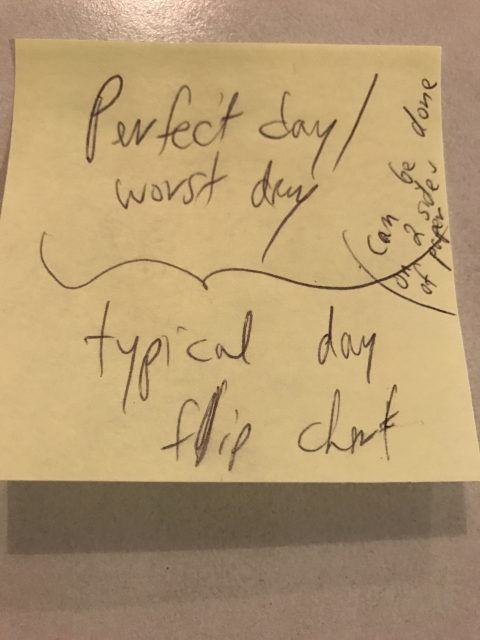 Perfect day/
worst day
typical day
flip chart
(can be done
on 2 sides
of paper